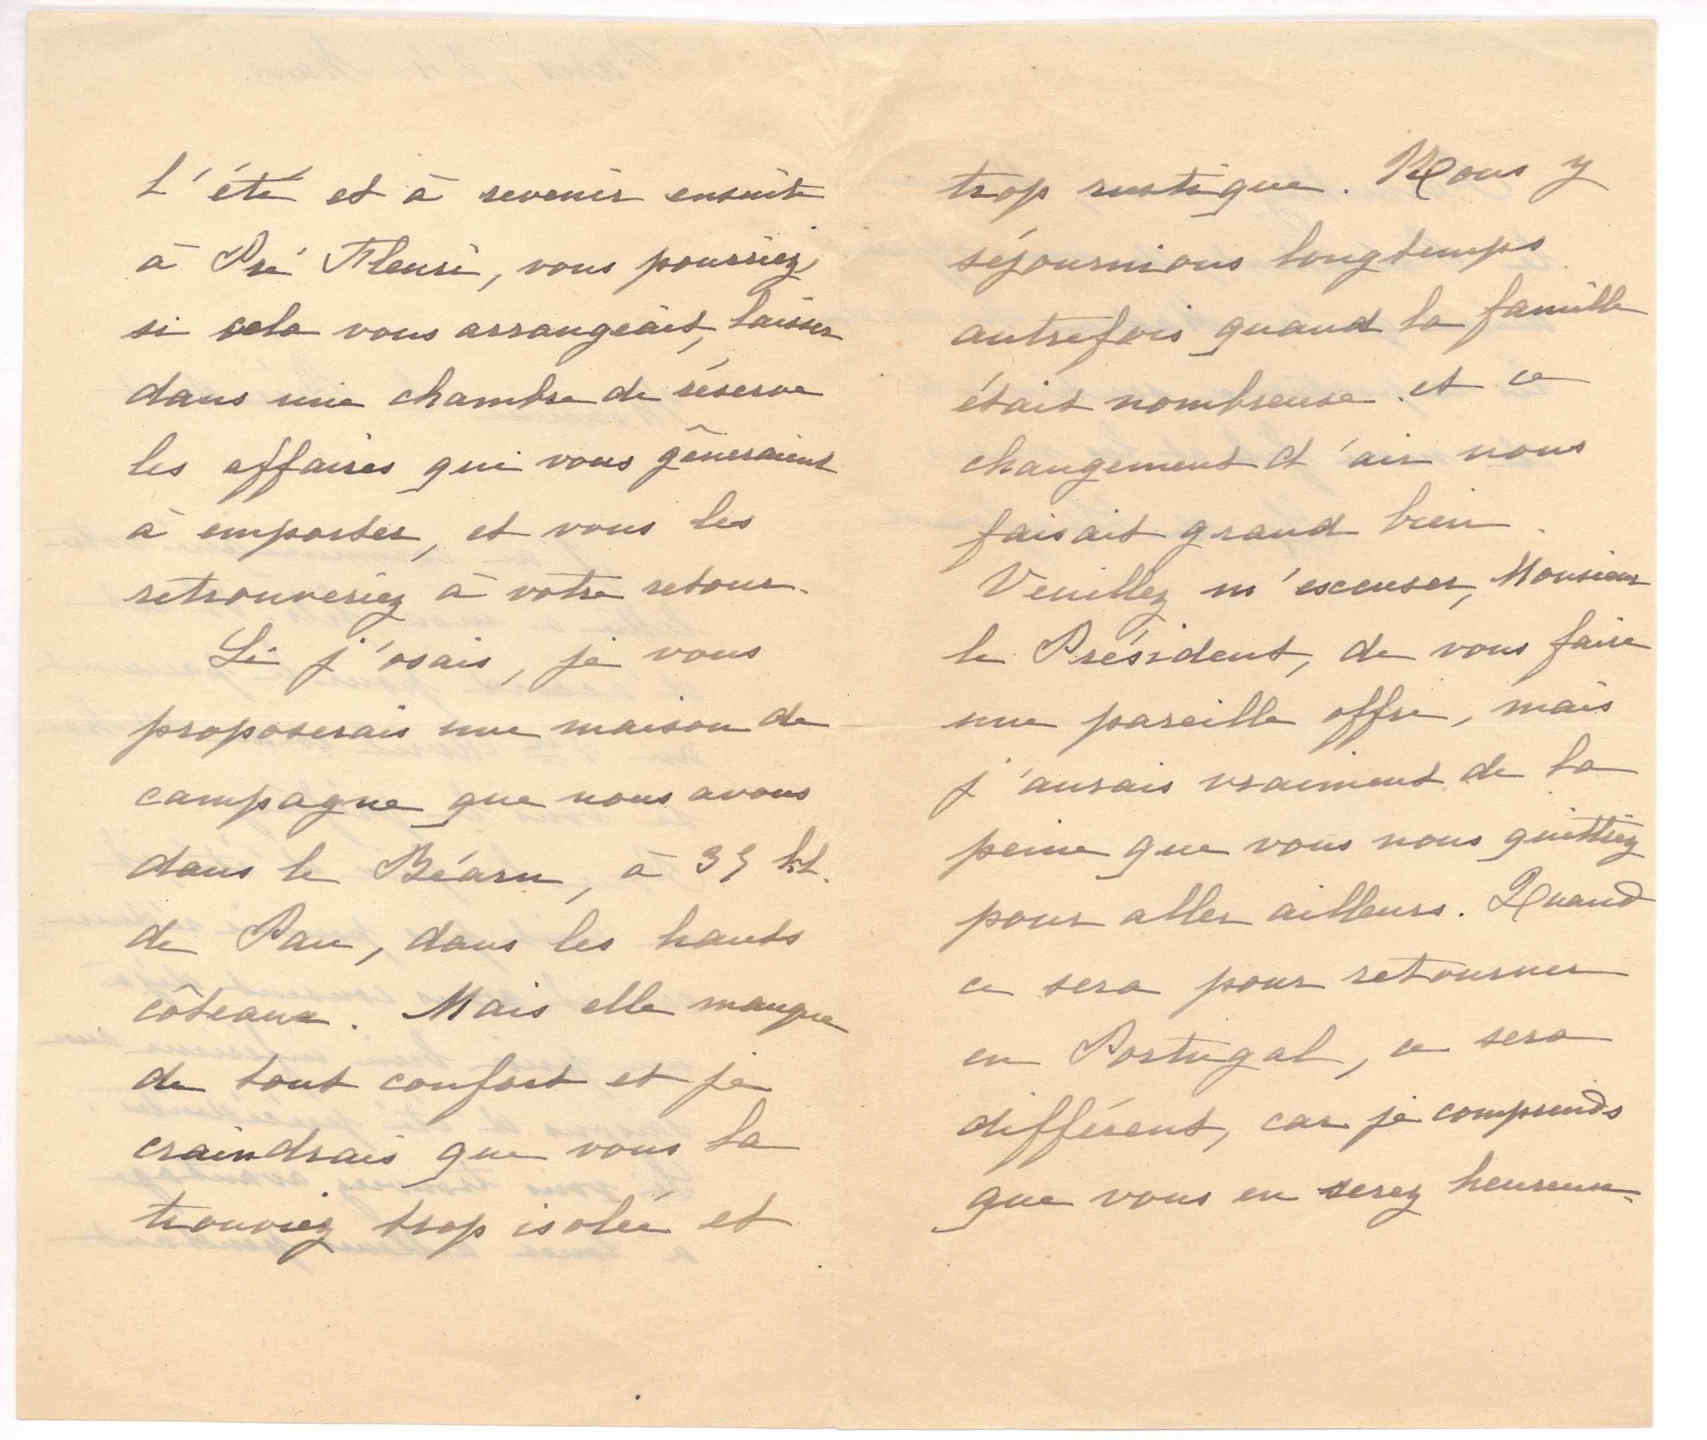 l'été et à revenir ensuite
à Pré Fleuri, vous pourriez,
si cela vous arrangeait, laisser
dans une chambre de réserve
les affaires qui vous gêneraient
à emporter, et vous les
retrouveriez à votre retour.
Si j'osais, je vous
proposerais une maison de
campagne que nous avons
dans le Béarn, à 35 kil.
de Pau, dans les hauts
côteaux. Mais elle manque
de tout confort et je
craindrais que vous la
trouviez trop isolée et
trop rustique. Nous y
séjournions longtemps
autrefois quand la famille
était nombreuse et ce
changement d'air nous
faisait grand bien.
Veuillez m'excuser, Monsieur
le Président, de vous faire
une pareille offre, mais
j'aurais vraiment de la
peine que vous nous quittiez
pour aller ailleurs. Quand
ce sera pour retourner
en Portugal, ce sera
différent, car je comprends
que vous en serez heureux.